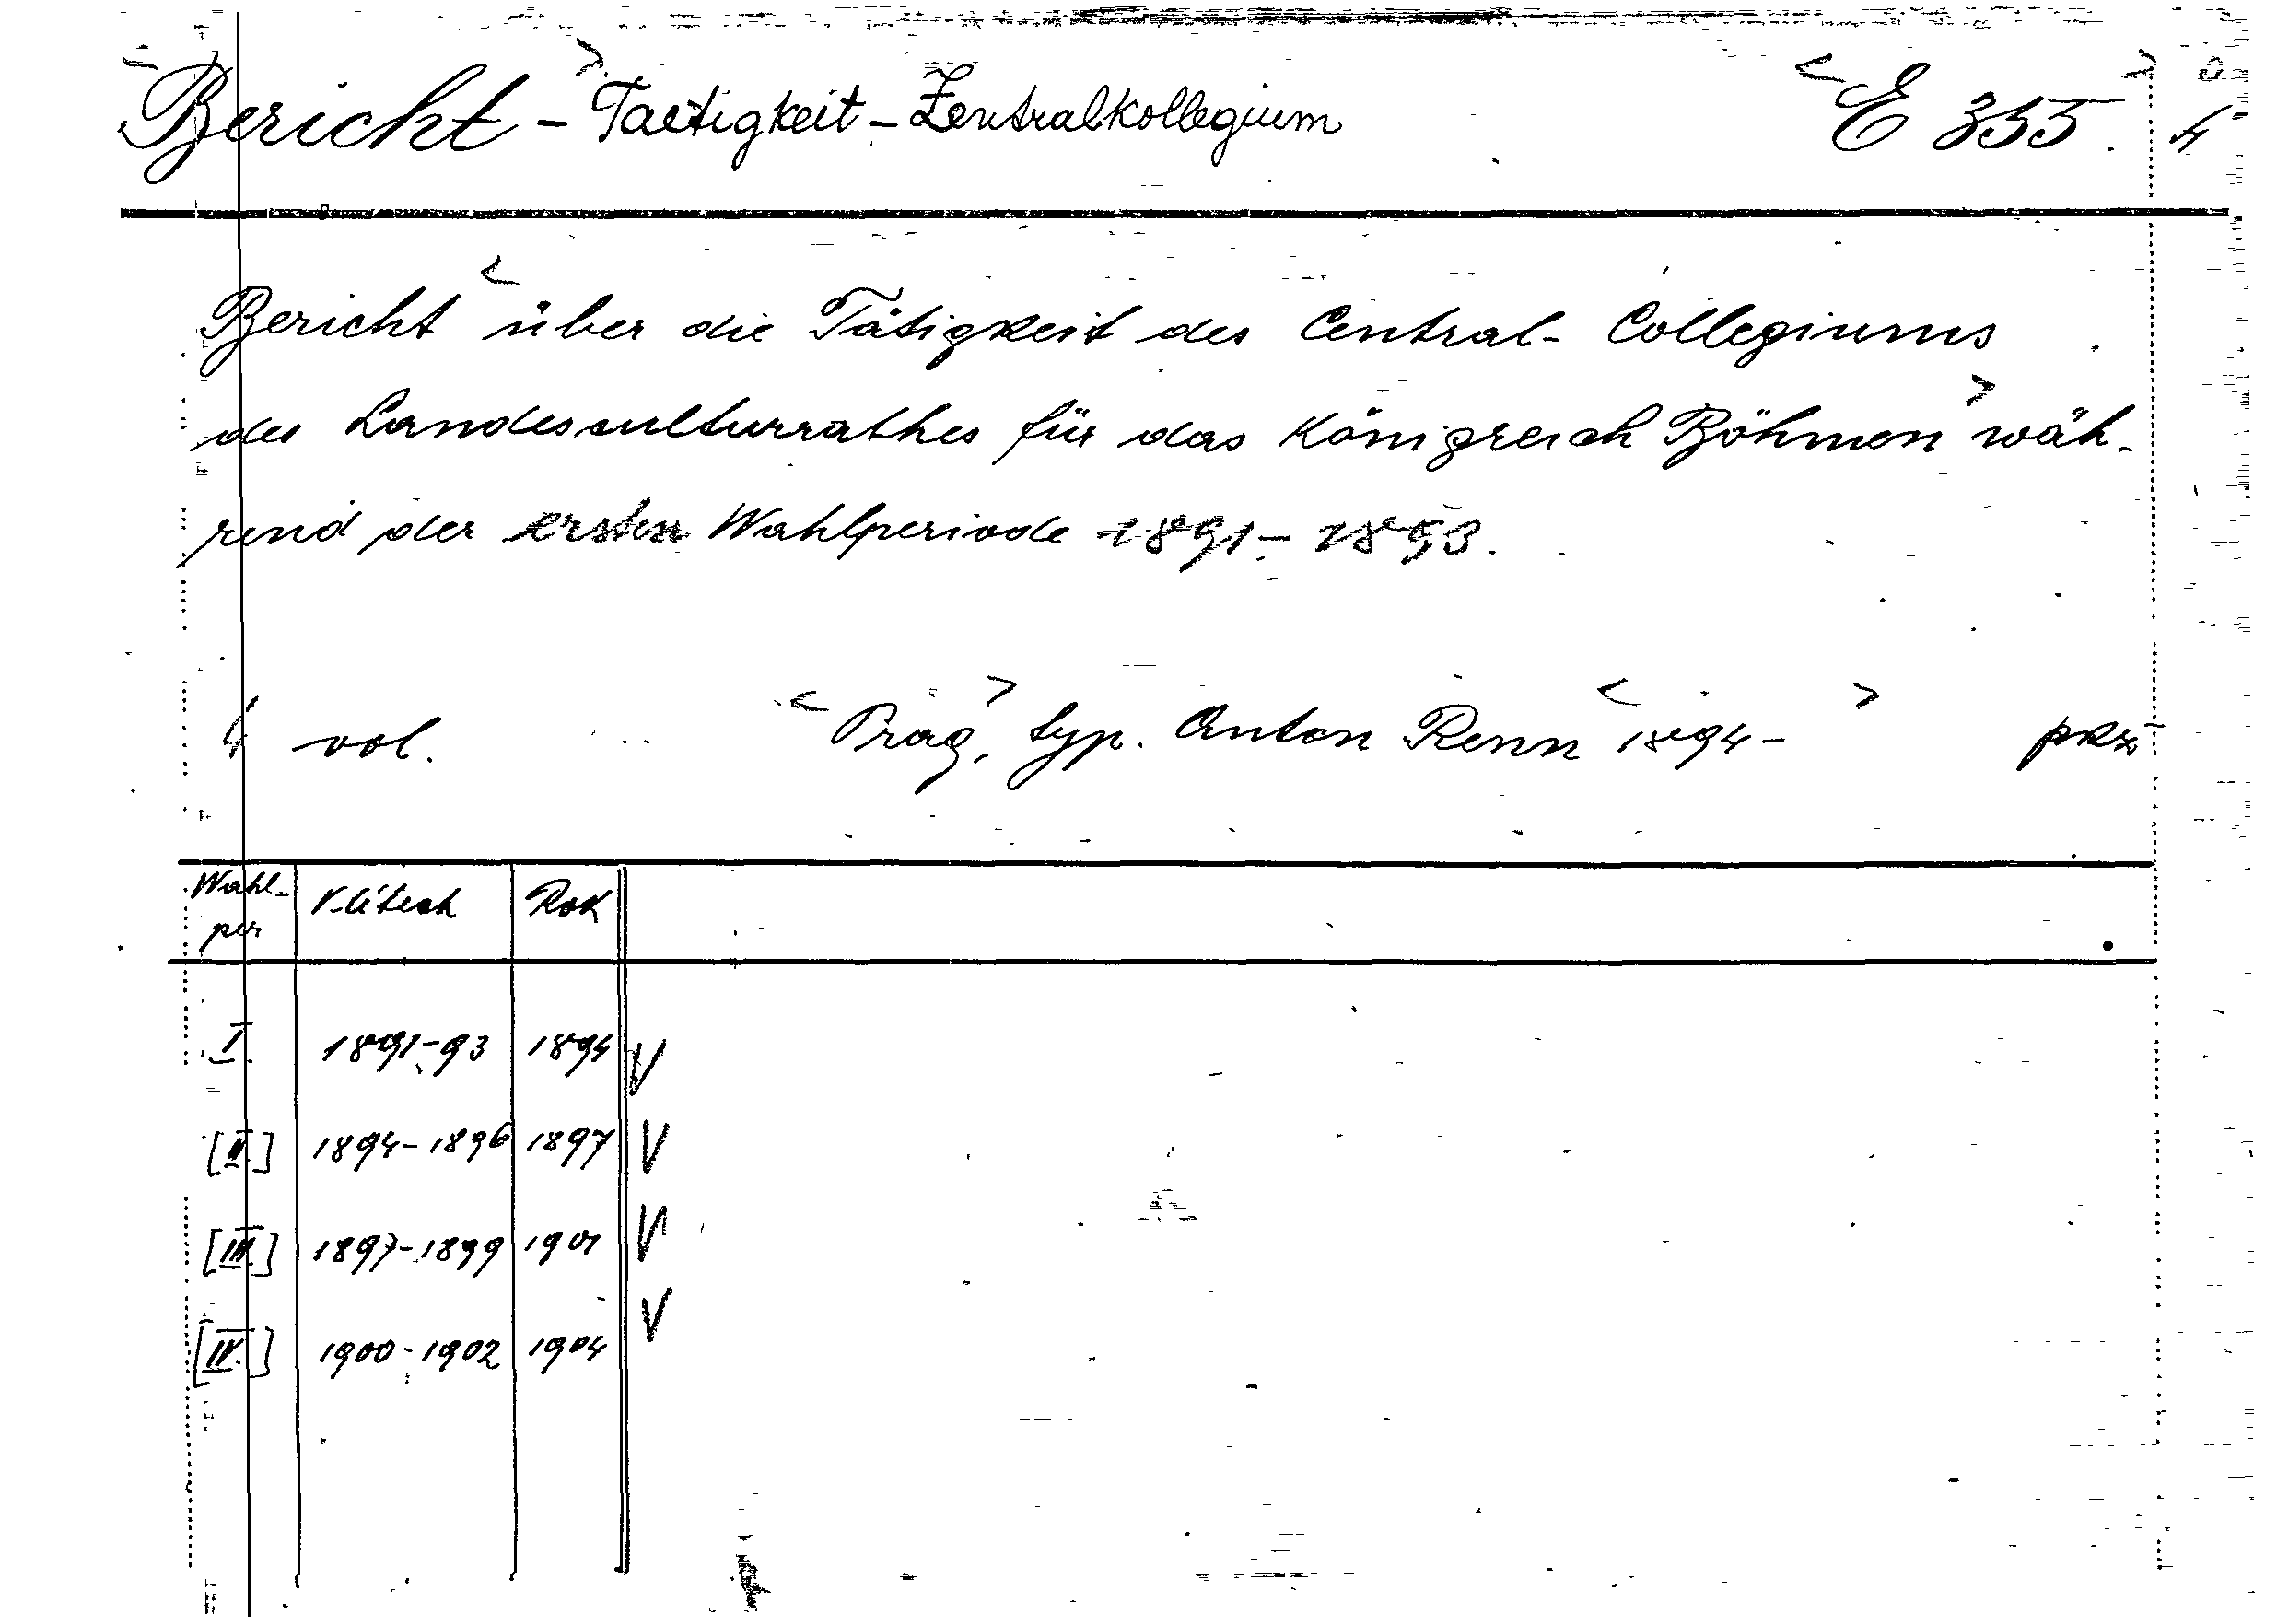 Bericht - Taetigkeit - Zentralkollegium E 355. 4
Bericht über die Tätigkeit des Central-Collegiums
des Landesculturrathes für das Königreich Böhmen wäh-
rend der ersten Wahlperiode 1891 - 1893.
4 vol. Prag, typ. Anton Renn 1894 - prz
Wahl- V létech Rok
per
I. 1891-93 1894 V
[II.] 1894-1896 1897 V
[III.] 1897-1899 1901 V
[IV.] 1900-1902 1904 V